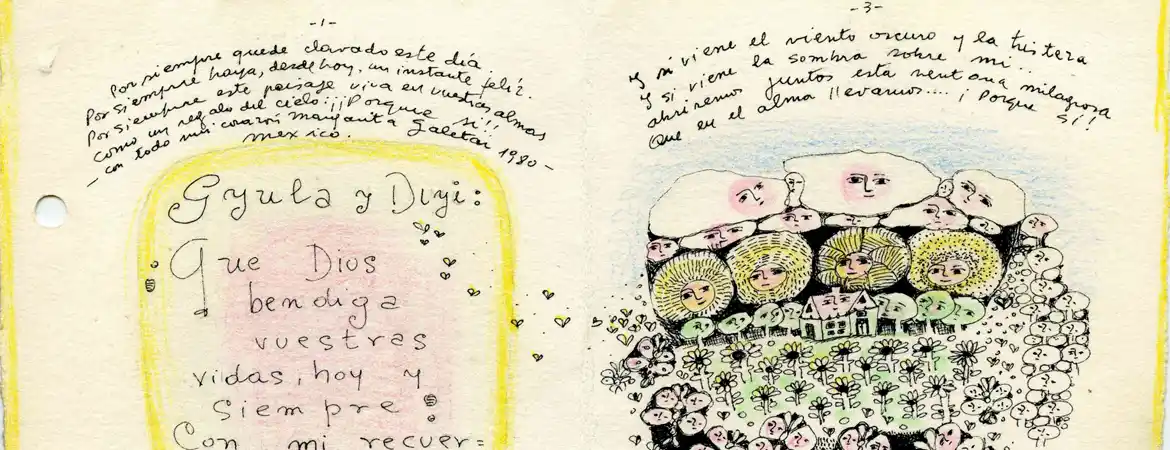 -1-
Por siempre quede clavado este día.
Por siempre haya, desde hoy, un instante feliz.
Por siempre este paisaje viva en vuestras almas
como un regalo del cielo: ¡¡Porque si!!
- con todo mi corazón Margarita Galetar 1980 -
mexico.
Gyula y Diyi:
Que Dios
bendiga
vuestras
vidas, hoy y
siempre
Con mi recuer=
-3-
Y si viene el viento oscuro y la tristeza
Y si viene la sombra sobre mi...
abriremos juntos esta ventana milagrosa
que en el alma llevamos.... ¡Porque Sí!